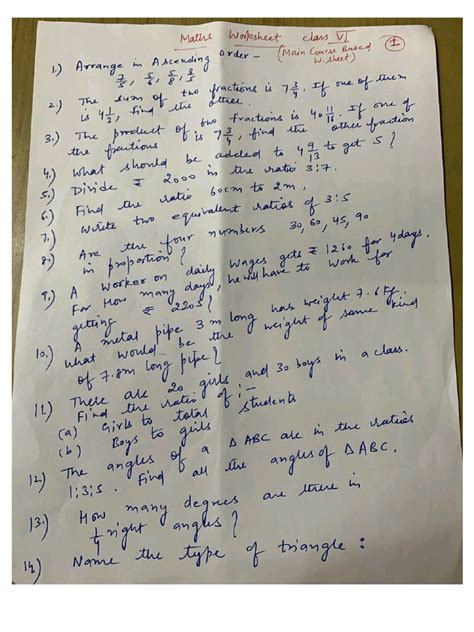 Maths Worksheet class VI
(Main Course Based W.sheet)
1
1.) Arrange in Ascending Order -
7/5, 5/6, 5/8, 3/5
2.) The sum of two fractions is 7 3/4. If one of them
is 4 1/2, find the other.
3.) The product of two fractions is 40 11/16. If one of
the fractions is 7 3/4, find the other fraction
4.) What should be added to 4 9/13 to get 5?
5.) Divide ₹ 2000 in the ratio 3:7.
6.) Find the ratio 60cm to 2m,
7.) Write two equivalent ratios of 3:5
8.) Are the four numbers 30, 60, 45, 90
in proportion?
9.) A worker on daily wages gets ₹ 1260 for 4days.
For How many days, he will have to work for
getting ₹ 2205?
10.) A metal pipe 3 m long has weight 7.6 kg.
What would be the weight of same kind
of 7.8m long pipe?
11.) There are 20 girls and 30 boys in a class.
Find the ratio of :-
(a) Girls to total students
(b) Boys to girls
12.) The angles of a △ ABC are in the ratios
1:3:5. Find all the angles of △ ABC.
13.) How many degrees are there in
1/4 right angles?
14) Name the type of triangle :